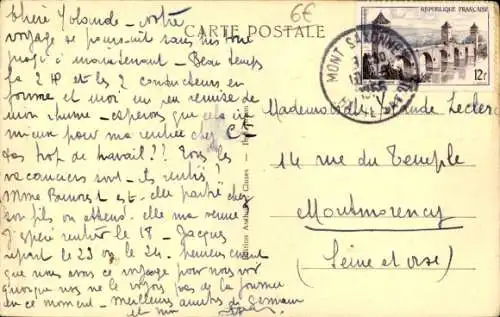 6€
CARTE POSTALE
REPUBLIQUE FRANÇAISE
12F
MONT SAXONNEX
1955
Chère Yolande - Notre
voyage se poursuit sans
jusqu'à maintenant - Beau temps
la 2 HP et les 2 conducteurs en
forme et moi un peu remise de
mon rhume - espérons que cela ira
mieux pour ma rentrée chez
pas trop de travail ?? Tous les
vacanciers sont-ils rentrés ?
Mme est-elle partie chez
son fils ou attend-elle ma venue
J'espère rentrer le 18 - Jacques
repart le 23 ou le 24. heureusement
que nous avons ce voyage pour nous voir
puisque nous ne le voyons pas de la journée
en ce moment - meilleures amitiés de Germain
et moi
Mademoiselle Yolande Leclerc
14 rue du Temple
Montmorency
(Seine et Oise)